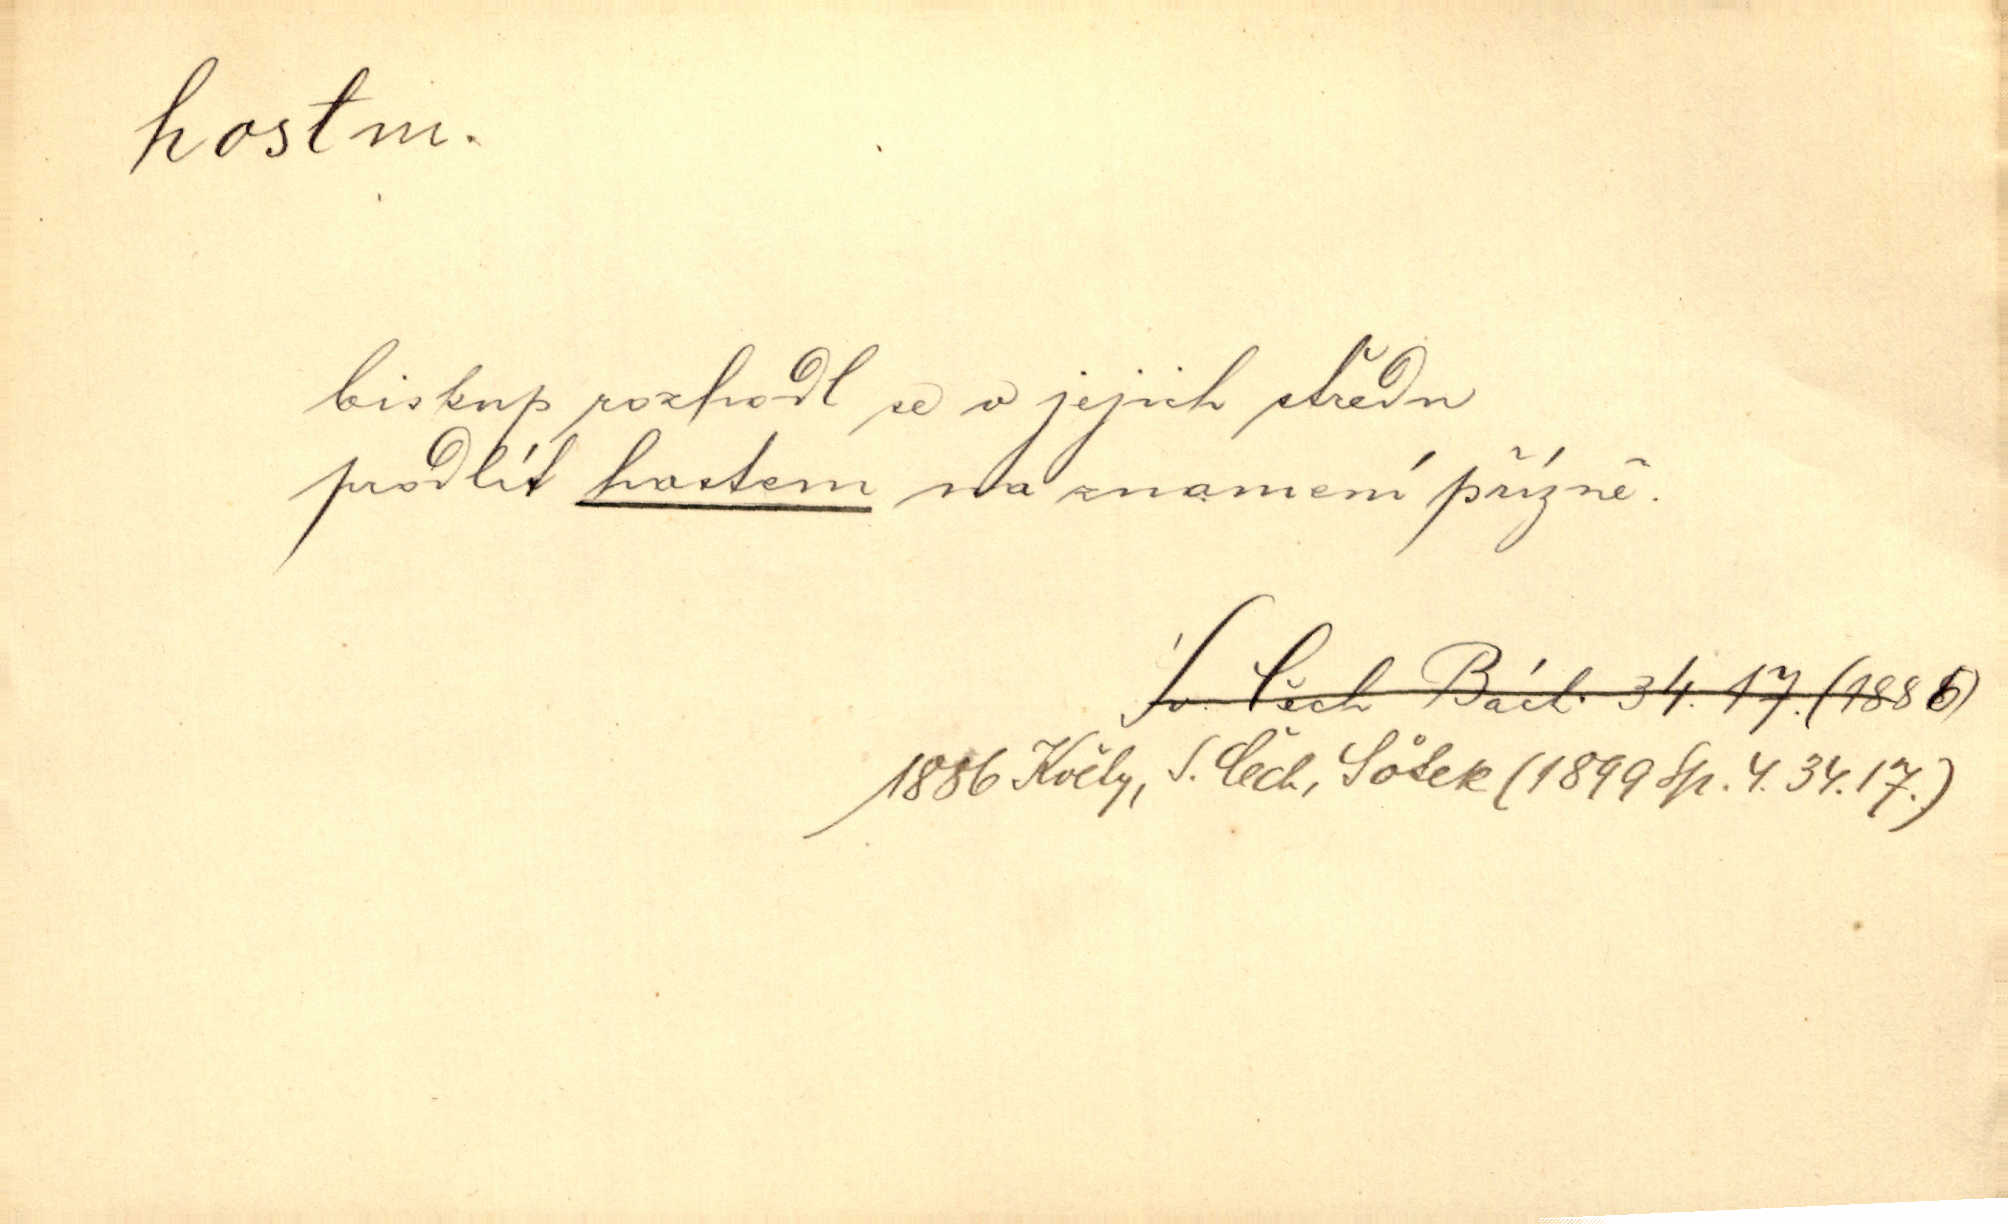 host m.
biskup rozhodl se v jejich středu
prodlít hostem na znamení přízně.
Sv. Čech Bácl. 34. 17. (1886)
1886 Květy, S. Čech, Sůtek (1899 Sp. 4. 34. 17.)